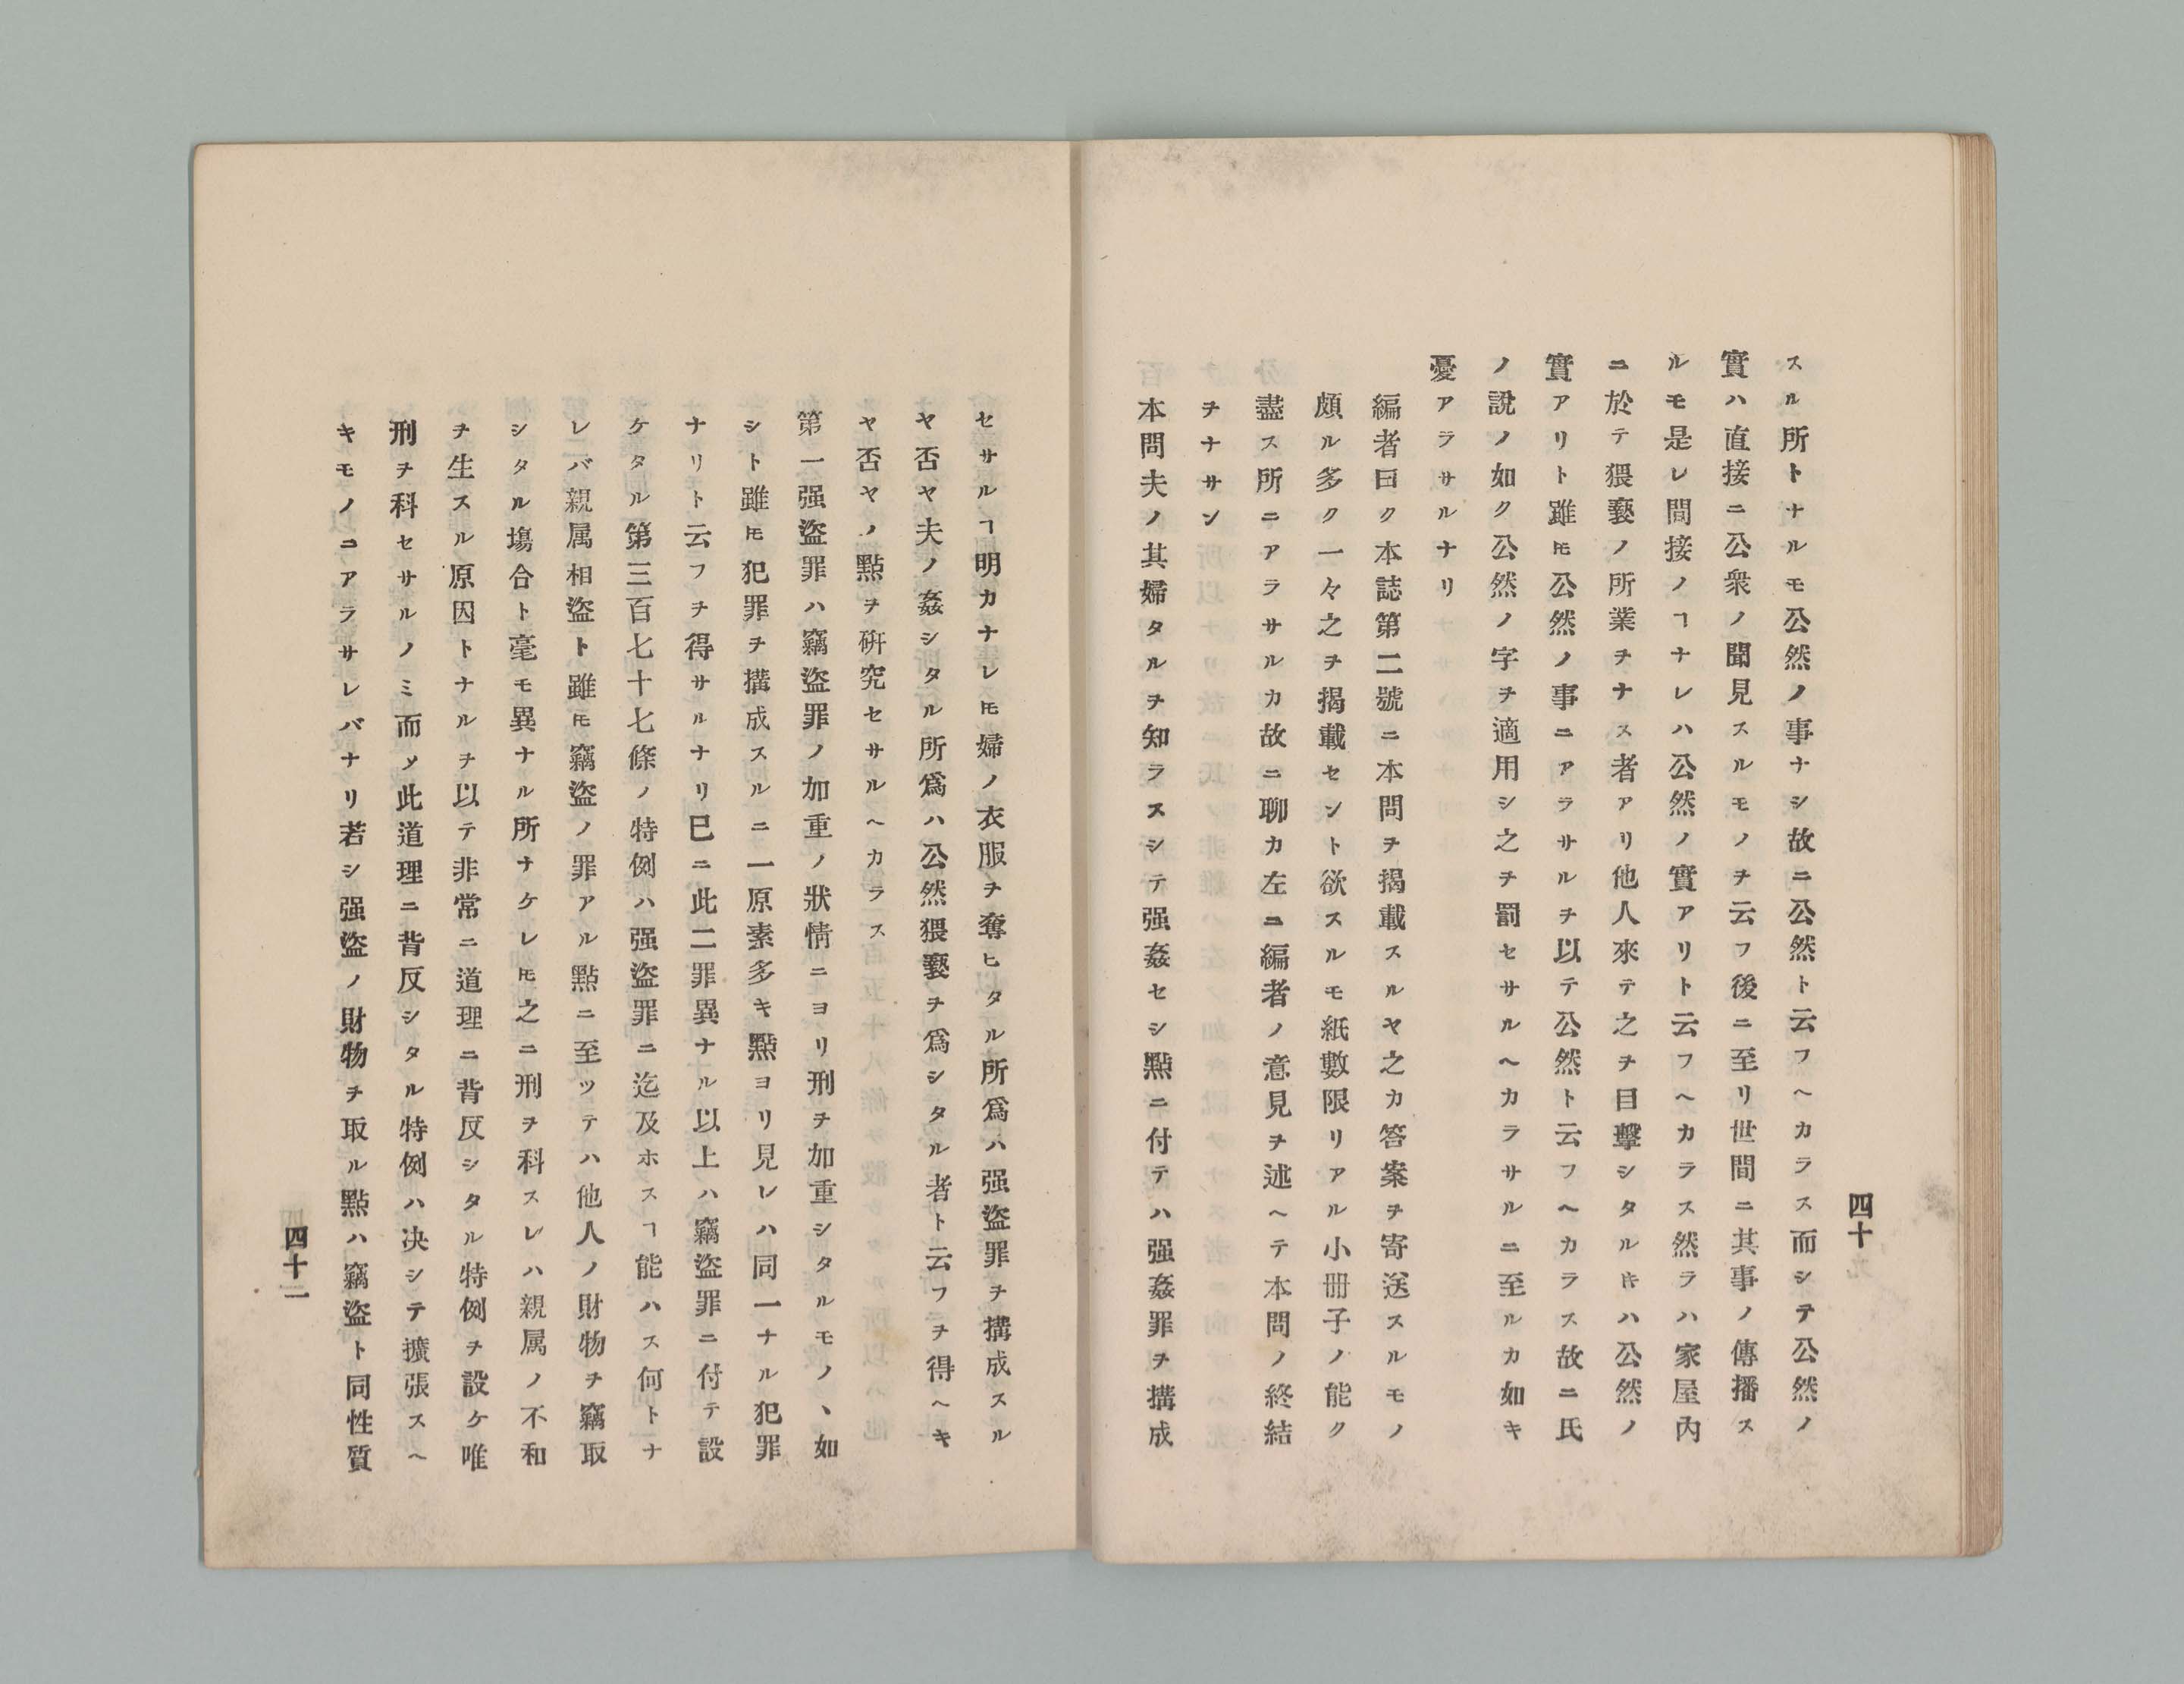 四十
スル所トナルモ公然ノ事ナシ故ニ公然ト云フヘカラス而シテ公然ノ
實ハ直接ニ公衆ノ聞見スルモノヲ云フ後ニ至リ世間ニ其事ノ傳播ス
ルモ是レ間接ノヿナレハ公然ノ實アリト云フヘカラス然ラハ家屋内
ニ於テ猥褻ノ所業ヲナス者アリ他人來テ之ヲ目擊シタル𪜈ハ公然ノ
實アリト雖𪜈公然ノ事ニアラサルヲ以テ公然ト云フヘカラス故ニ氏
ノ説ノ如ク公然ノ字ヲ適用シ之ヲ罰セサルヘカラサルニ至ルカ如キ
憂アラサルナリ
編者曰ク本誌第二號ニ本問ヲ揭載スルヤ之カ答案ヲ寄送スルモノ
頗ル多ク一々之ヲ揭載セント欲スルモ紙數限リアル小冊子ノ能ク
盡ス所ニアラサルカ故ニ聊カ左ニ編者ノ意見ヲ述ヘテ本問ノ終結
ヲナサン
本問夫ノ其婦タルヲ知ラスシテ强姦セシ點ニ付テハ强姦罪ヲ搆成
セサルヿ明カナレ𪜈婦ノ衣服ヲ奪ヒタル所爲ハ强盜罪ヲ搆成スル
ヤ否ヤ夫ノ姦シタル所爲ハ公然猥褻ヲ爲シタル者ト云フヲ得ヘキ
ヤ否ヤノ點ヲ硏究セサルヘカラス
第一强盜罪ハ竊盜罪ノ加重ノ狀情ニヨリ刑ヲ加重シタルモノヽ如
シト雖𪜈犯罪ヲ搆成スルニ一原素多キ點ヨリ見レハ同一ナル犯罪
ナリト云フヲ得サルナリ巳ニ此二罪異ナル以上ハ竊盜罪ニ付テ設
ケタル第三百七十七條ノ特例ハ强盜罪ニ迄及ホスヿ能ハス何トナ
レバ親属相盜ト雖𪜈竊盜ノ罪アル點ニ至ツテハ他人ノ財物ヲ竊取
シタル塲合ト毫モ異ナル所ナケレ𪜈之ニ刑ヲ科スレハ親属ノ不和
ヲ生スル原因トナルヲ以テ非常ニ道理ニ背反シタル特例ヲ設ケ唯
刑ヲ科セサルノミ而〆此道理ニ背反シタル特例ハ决シテ擴張スヘ
キモノニアラサレバナリ若シ强盜ノ財物ヲ取ル點ハ竊盜ト同性質
四十一